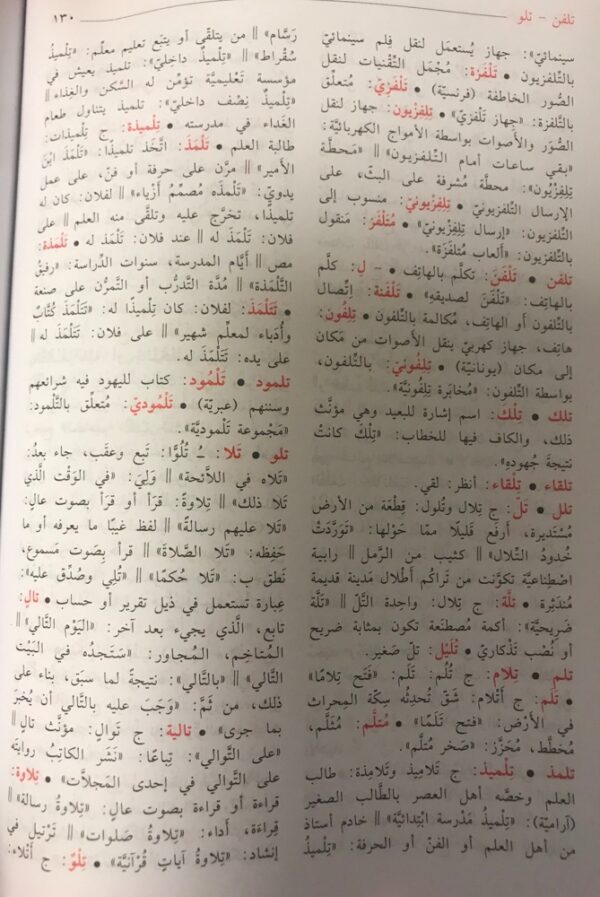 تلفن - تلو
١٣٠
سينمائيّ»: جهاز يُستعمَل لنقل فِلم سينمائيّ
بالتّلفزيون • تَلْفَزة: مُجْمَل التّقْنيات لنقل
الصُّور الخاطفة (فرنسيّة) • تَلْفَزِيّ: مُتعلِّق
بالتّلفزة: «جِهاز تَلْفزيّ» • تِلِفِزيون: جهاز لنقل
الصُّوَر والأصوات بواسطة الأمواج الكهربائيّة:
«بقي ساعات أمام التِّلفزيون» || «مَحطَّة
تِلِفِزْيُون»: محطَّة مُشرفة على البثّ، على
الإرسال التِّلفزيونيّ • تِلِفِزْيونيّ: منسوب إلى
التّلفزيون: «إرسال تِلِفِزْيونيّ» • مُتَلْفَز: مَنقول
بالتّلفزيون: «ألعاب مُتلفَزة».
تلفن • تَلْفَنَ: تكلَّم بالهاتِف • - لِ: كلَّم
بالهاتِف: «تَلْفَنَ لصديقهِ» • تَلْفَنة: اِتّصال
بالتّلفون أو الهاتِف، مُكالمة بالتّلفون • تِلِفُون:
هاتِف، جهاز كهربيّ ينقل الأصوات من مَكان
إلى مكان (يونانيّة) • تِلِفُونيّ: بالتّلفون،
بواسطة التّلفون: «مُخابَرة تِلِفُونيَّة».
تلك • تِلْكَ: اسم إشارة للبعيد وهي مؤنَّث
ذلك، والكاف فيها للخطاب: «تِلْكَ كانتْ
نتيجةَ جُهودِهِ».
تلقاء • تِلْقاء: أنظر: لقي.
تلل • تَلّ: ج تِلال وتُلول: قِطْعَة من الأرض
مُسْتديرة، أرفَع قليلًا ممّا حَوْلها: «تَوَرَّدَتْ
خُدودُ التِّلال» || كثيب من الرَّمل || رابية
اصْطِناعيَّة تكوَّنت من تَراكُم أطْلال مَدينة قديمة
مُندَثِرة • تَلَّة: ج تِلال: واحِدة التَّلّ || «تَلَّة
ضَريحيَّة»: أكمة مُصطنَعة تكون بمثابة ضريح
أو نُصْب تَذْكاريّ • تُلَيْل: تلّ صَغير.
تلم • تِلام: ج تُلُم: تَلَم: «فَتَح تِلامًا»
• تَلَم: ج أتْلام: شَقّ تُحدِثُه سِكّة المِحراث
في الأرْض: «فتح تَلَمًا» • مُتلَّم: مُثلَّم،
مُخطَّط، مُحَزَّز: «صَخر مُتلَّم».
تلمذ • تِلْميذ: ج تَلاميذ وتَلامِذة: طالب
العلم وخصَّه أهل العصر بالطَّالب الصغير
(آراميّة): «تِلْميذُ مَدْرسة ابْتِدائيَّة» || خادم أستاذ
من أهل العلم أو الفنّ أو الحرفة: «تِلْميذُ
رَسَّام» || من يتلقّى أو يتبَع تعليم معلِّم: «تِلْميذُ
سُقْراط» || «تِلْميذٌ داخِليّ»: تلميذ يعيش في
مؤسسة تَعْليميَّة تؤمّن له السَّكن والغِذاء ||
«تِلْميذٌ نِصْف داخليّ»: تلميذ يتناول طعام
الغَداء في مدرسته • تِلْميذة: ج تِلْميذات:
طالبة العلم • تَلْمَذَ: اتَّخَذ تلميذًا: «تَلْمَذَ ابْنَ
الأمير» || مرَّن على حرفة أو فنّ، على عمل
يدويّ: «تَلْمَذَه مُصمِّمُ أزْياء» || لفلان: كان له
تلميذًا، تخرَّج عليه وتلقَّى منه العلم || على
فلان: تَلْمَذَ له || عند فلان: تَلْمَذَ له • تَلْمَذة:
مص || أيَّام المدرسة، سنوات الدِّراسة: «رفيقُ
التَّلْمَذة» || مُدَّة التدرُّب أو التَّمرُّن على صنعة
• تَتَلْمَذَ: لفلان: كان تِلْميذًا له: «تَتَلْمَذَ كُتَّابٌ
وأُدَباء لمعلِّم شهير» || على فلان: تَتَلْمَذَ له ||
على يده: تَتَلْمَذَ له.
تلمود • تَلْمُود: كتاب لليهود فيه شرائعهم
وسننهم (عبريّة) • تَلْمُوديّ: مُتعلِّق بالتَّلْمود:
«مَجْموعة تَلْموديَّة».
تلو • تَلا: ـُ تُلُوًّا: تَبِع وعقَب، جاء بعدُ:
«تَلاه في اللاَّئحة» || وَلِيَ: «في الوَقْت الَّذي
تَلا ذلك» || تِلاوةً: قرَأ أو قرَأ بصوت عالٍ:
«تَلا عليهم رِسالةً» || لفظ غيبًا ما يعرفه أو ما
حَفِظه: «تَلا الصَّلاةَ» || قرأ بِصَوت مَسموع،
نَطق ب: «تَلا حُكمًا» || «تُلِي وصُدِّق عليه»:
عِبارة تستعمل في ذيل تقرير أو حساب • تالٍ:
تابع، الَّذي يجيء بعد آخر: «اليَوْم التّالي» ||
المُتاخِم، المُجاوِر: «سَتَجدُه في البَيْت
التّالي» || «بالتّالي»: نتيجةً لما سبَق، بناء على
ذلك، من ثَمَّ: «وَجَبَ عليه بالتّالي أن يُخبَرَ
بما جرى» • تالية: ج تَوالٍ: مؤنَّث تالٍ ||
«على التَّوالي»: تِباعًا: «نَشَر الكاتِبُ روايتَه
على التَّوالي في إحدى المَجلاَّت» • تِلاوة:
قراءة أو قراءة بصوت عالٍ: «تِلاوةُ رسالة» ||
قِراءَة، أداء: «تِلاوةُ صَلَوات» || تَرْتيل في
إنشاد: «تِلاوةُ آياتٍ قُرْآنيَّة» • تِلْوٌ: ج أتْلاء: